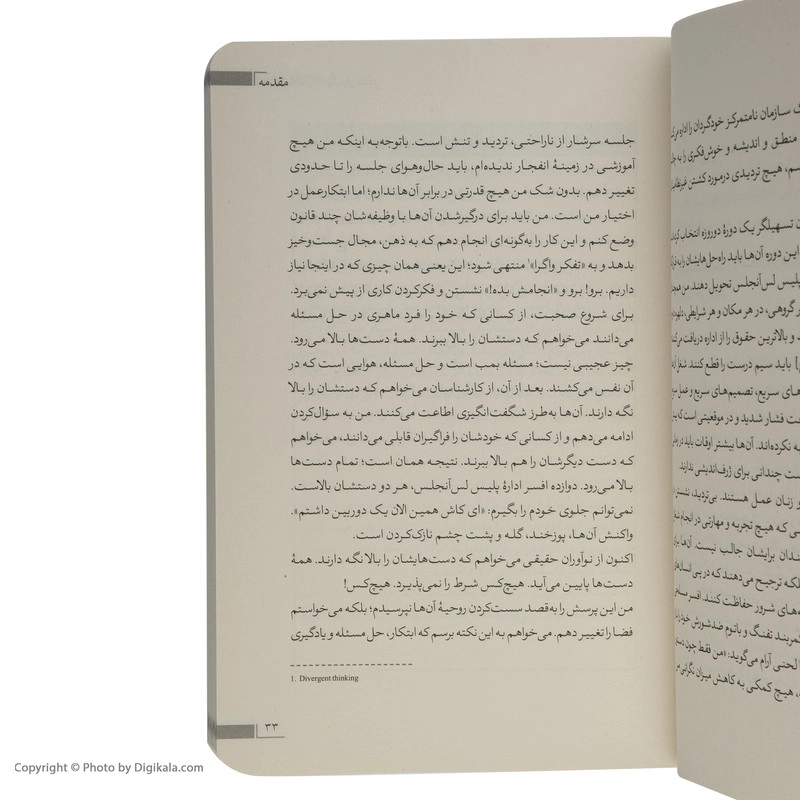 مقدمه
جلسه سرشار از ناراحتی، تردید و تنش است. باتوجه‌به اینکه من هیچ
آموزشی در زمینهٔ انفجار ندیده‌ام، باید حال‌وهوای جلسه را تا حدودی
تغییر دهم. بدون شک من هیچ قدرتی در برابر آن‌ها ندارم؛ اما ابتکارعمل در
اختیار من است. من باید برای درگیرشدن آن‌ها با وظیفه‌شان چند قانون
وضع کنم و این کار را به‌گونه‌ای انجام دهم که به ذهن، مجال جست‌وخیز
بدهد و به «تفکر واگرا»۱ منتهی شود؛ این یعنی همان چیزی که در اینجا نیاز
داریم. برو! برو و «انجامش بده!» نشستن و فکرکردن کاری از پیش نمی‌برد.
برای شروع صحبت، از کسانی که خود را فرد ماهری در حل مسئله
می‌دانند می‌خواهم که دستشان را بالا ببرند. همهٔ دست‌ها بالا می‌رود.
چیز عجیبی نیست؛ مسئله بمب است و حل مسئله، هوایی است که در
آن نفس می‌کشند. بعد از آن، از کارشناسان می‌خواهم که دستشان را بالا
نگه دارند. آن‌ها به‌طرز شگفت‌انگیزی اطاعت می‌کنند. من به سؤال‌کردن
ادامه می‌دهم و از کسانی که خودشان را فراگیران قابلی می‌دانند، می‌خواهم
که دست دیگرشان را هم بالا ببرند. نتیجه همان است؛ تمام دست‌ها
بالا می‌رود. دوازده افسر ادارهٔ پلیس لس‌آنجلس، هر دو دستشان بالاست.
نمی‌توانم جلوی خودم را بگیرم: «ای کاش همین الان یک دوربین داشتم».
واکنش آن‌ها، پوزخند، گله و پشت چشم نازک‌کردن است.
اکنون از نوآوران حقیقی می‌خواهم که دست‌هایشان را بالا نگه دارند. همهٔ
دست‌ها پایین می‌آید. هیچ‌کس شرط را نمی‌پذیرد. هیچ‌کس!
من این پرسش را به‌قصد سست‌کردن روحیهٔ آن‌ها نپرسیدم؛ بلکه می‌خواستم
فضا را تغییر دهم. می‌خواهم به این نکته برسم که ابتکار، حل مسئله و یادگیری
1. Divergent thinking
۳۳
سازمان نامتمرکز خودگردان را اداره
منطق و اندیشه و خوش‌فکری را به
هیچ تردیدی درمورد کشتن
تسهیلگر یک دورهٔ دوروزه انتخاب
این دوره آن‌ها باید راه‌حل‌هایشان را به
پلیس لس‌آنجلس تحویل دهند. من
گروهی، در هر مکان و هر شرایطی،
و بالاترین حقوق را از اداره دریافت
باید سیم درست را قطع کنند. شغل
سریع، تصمیم‌های سریع و عمل
فشار شدید و در موقعیتی است که
نکرده‌اند. آن‌ها بیشتر اوقات باید در
چندانی برای ژرف‌اندیشی ندارند.
و زنان عمل هستند. بی‌تردید، نشستن
که هیچ تجربه و مهارتی در انجام
برایشان جالب نیست. آن‌ها
ترجیح می‌دهند که در پی
شرور حفاظت کنند. افسر
تفنگ و باتوم ضدشورش خود را
لحنی آرام می‌گوید: «من فقط چون
هیچ کمکی به کاهش میزان نگرانی
Copyright © Photo by Digikala.com